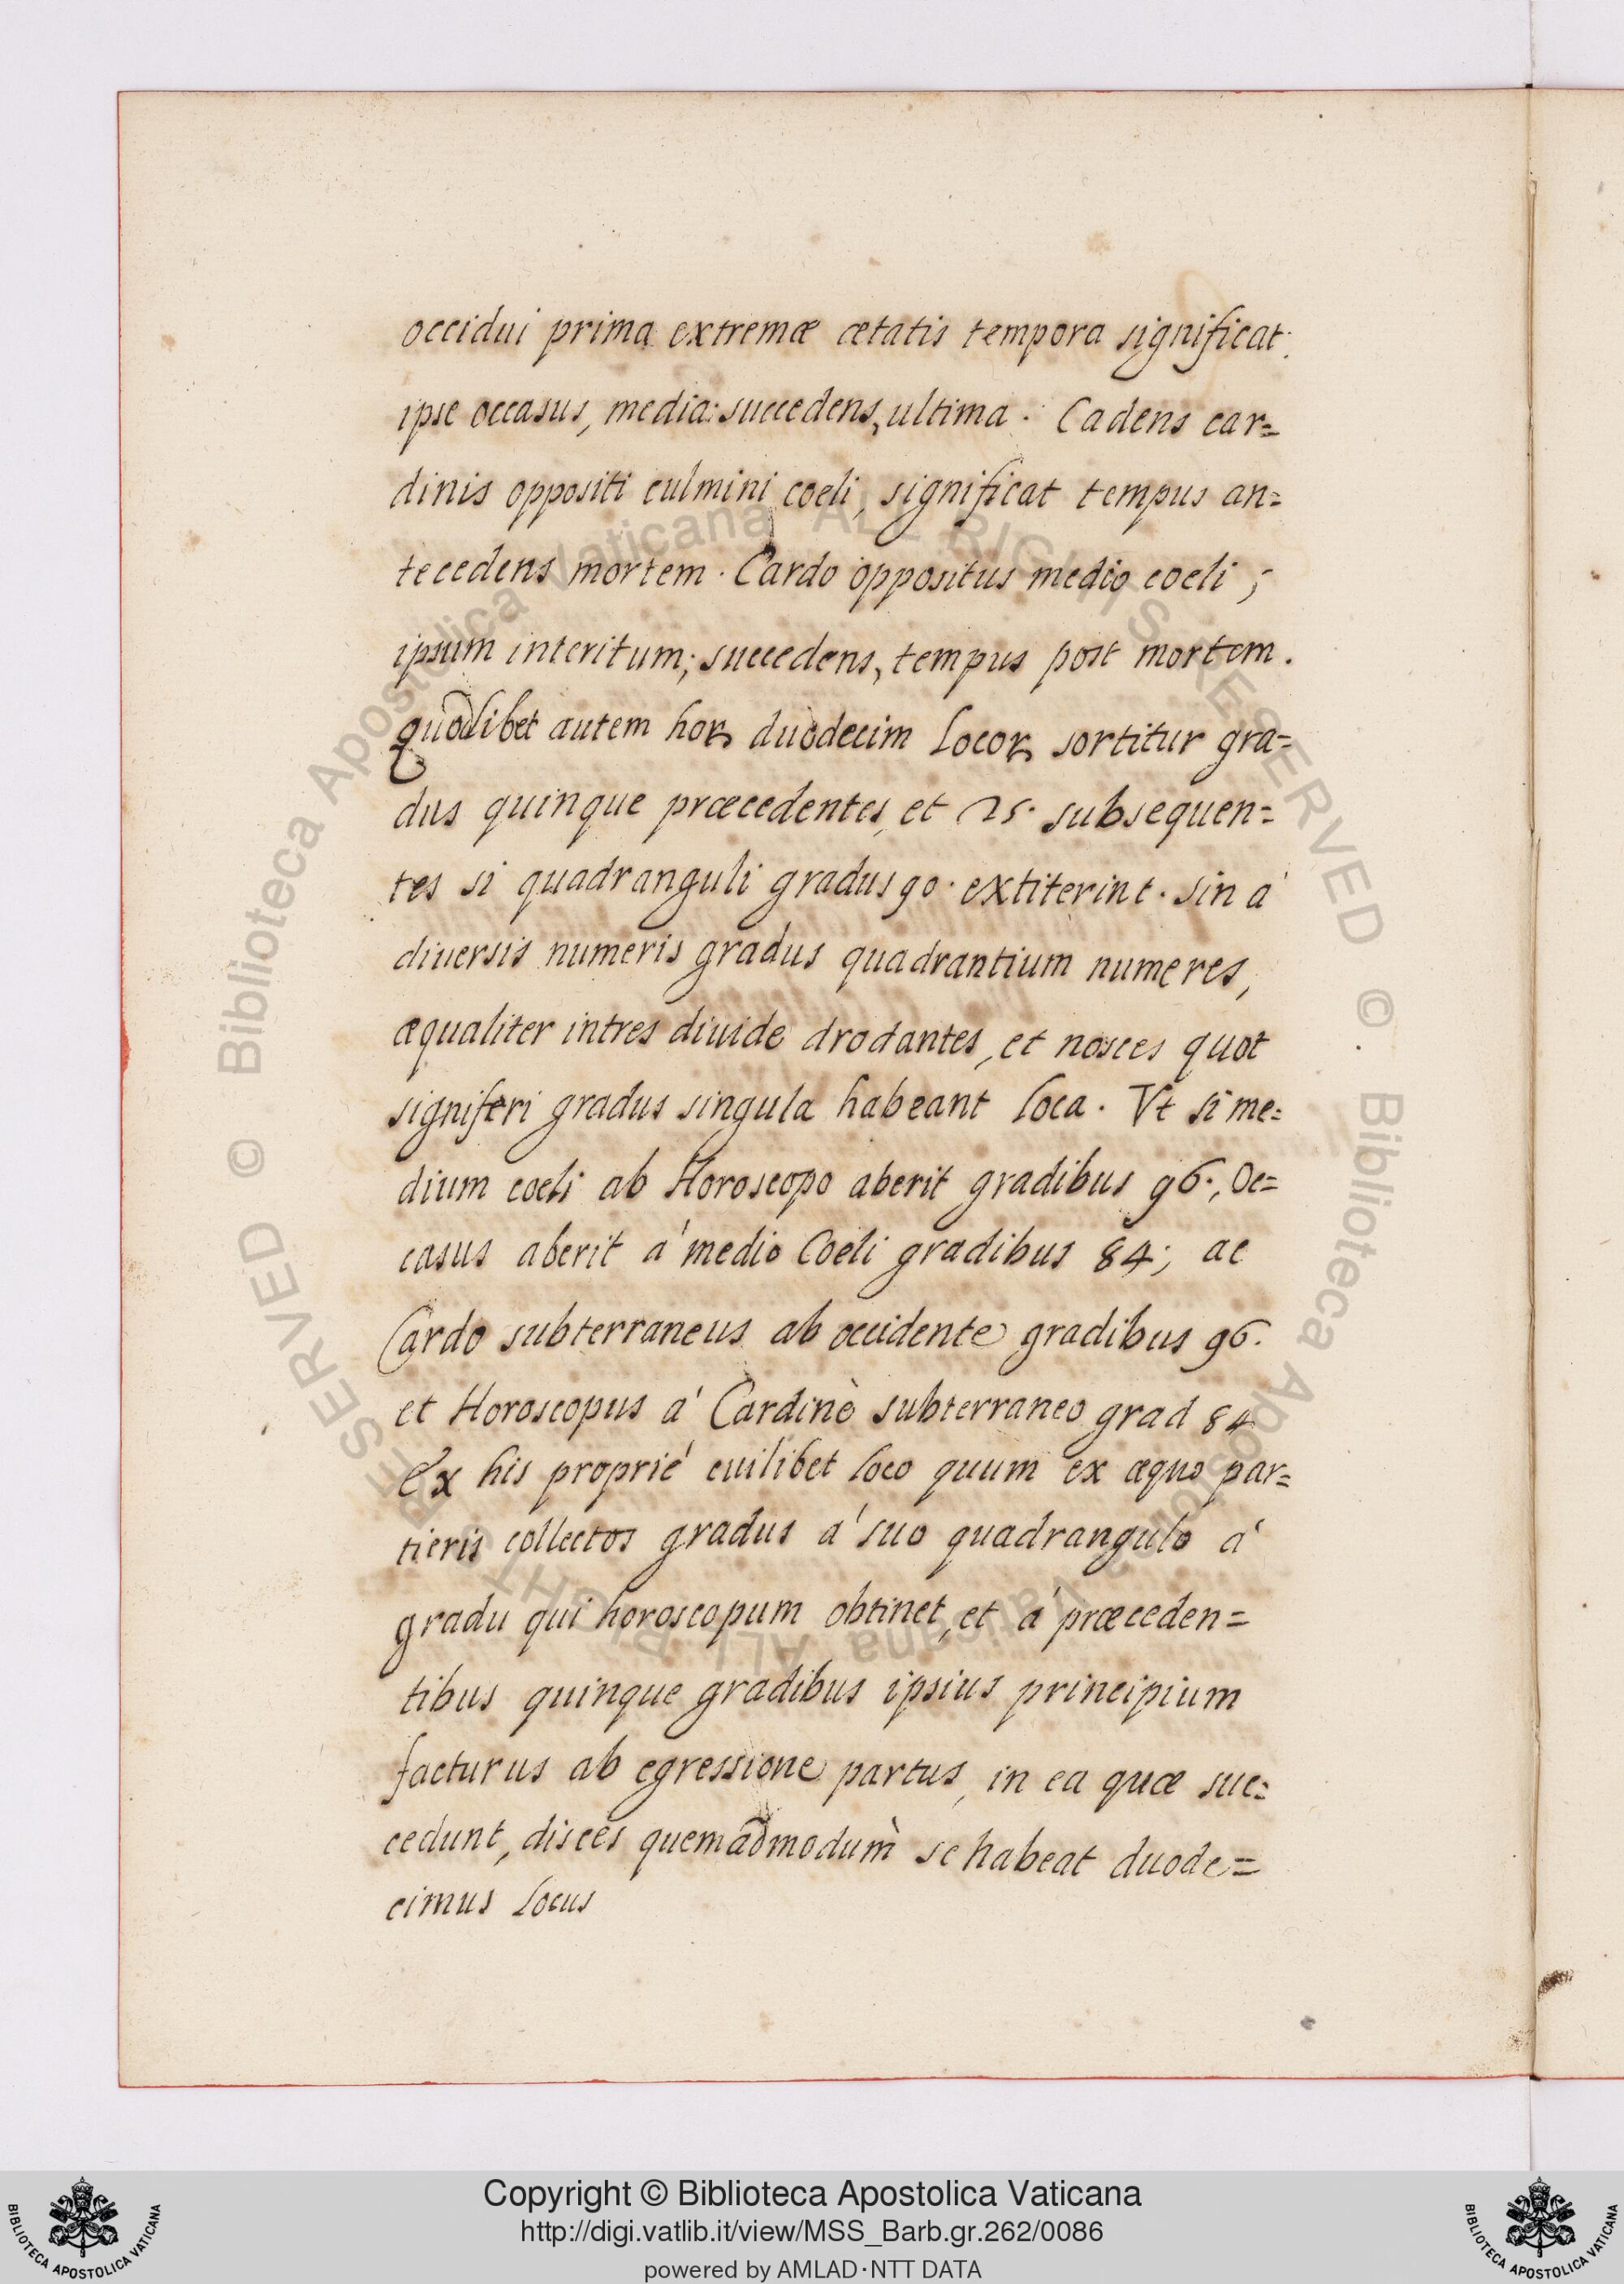 occidui prima extremæ ætatis tempora significat.
ipse occasus, media: succedens, ultima. Cadens car=
dinis oppositi culmini coeli, significat tempus an=
tecedens mortem. Cardo oppositus medio coeli ;
ipsum interitum; succedens, tempus post mortem.
quodlibet autem horꝝ duodecim Locorꝝ sortitur gra=
dus quinque præcedentes, et 25. subsequen=
tes si quadranguli gradus 90. extiterint. Sin á
diuersis numeris gradus quadrantium numeres,
æqualiter intres diuide drodantes, et nosces quot
signiferi gradus singula habeant loca. Vt si me=
dium coeli ab Horoscopo aberit gradibus 96., Oc=
casus aberit á medio Coeli gradibus 84; ac
Cardo subterraneus ab occidente gradibus 96.
et Horoscopus á Cardinè subterraneo grad 84
Ex his proprié cuilibet loco quum ex æquo par=
tieris collectos gradus á suo quadrangulo á
gradu qui horoscopum obtinet, et á præceden=
tibus quinque gradibus ipsius principium
facturus ab egressione partus, in ea quæ suc=
cedunt, disces quemadmodum se habeat duode=
cimus Locus
© Biblioteca Apostolica Vaticana ALL RIGHTS RESERVED © . Biblioteca Apostolica Vaticana ALL RIGHTS RESERVED
Copyright © Biblioteca Apostolica Vaticana
http://digi.vatlib.it/view/MSS_Barb.gr.262/0086
powered by AMLAD·NTT DATA
BIBLIOTECA APOSTOLICA VATICANA
BIBLIOTECA APOSTOLICA VATICANA